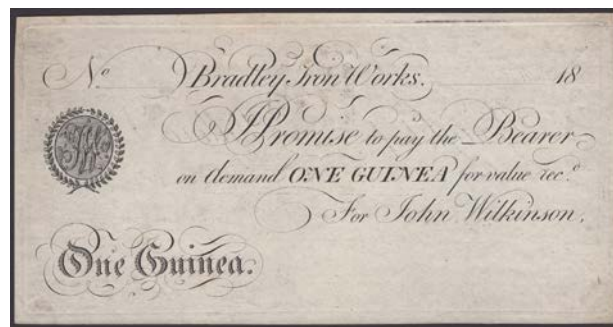 No Bradley Iron Works. 18
JW
I Promise to pay the Bearer
on demand ONE GUINEA for value rec.d
For John Wilkinson.
One Guinea.